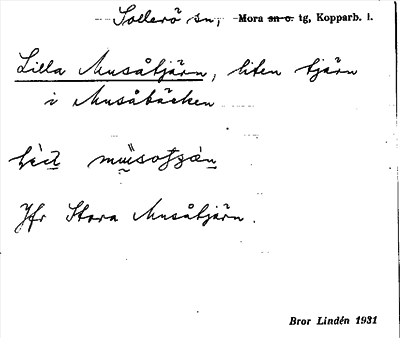 Sollerö sn, Mora sn o. tg, Kopparb. l.
Lilla Musåtjärn, liten tjärn
i Musåbäcken
Jfr Stora Musåtjärn.
Bror Lindén 1931